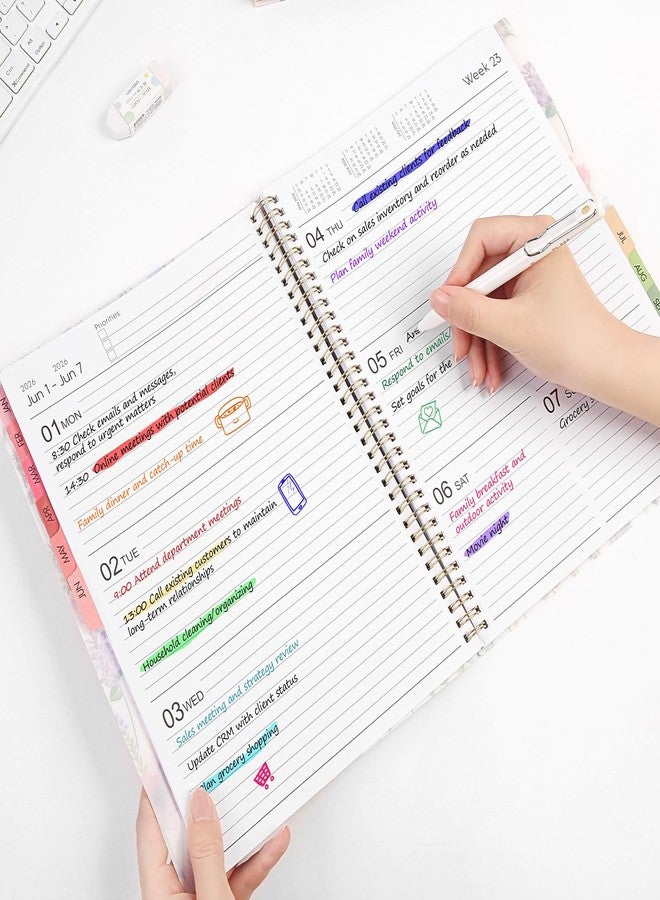 Ctrl
Alt
Option
Command
2026
2026
Jun 1 - Jun 7
Priorities:
01 MON
8:30 Check emails and messages,
respond to urgent matters
14:30 Online meetings with potential clients
Family dinner and catch-up time
02 TUE
9:00 Attend department meetings
13:00 Call existing customers to maintain
long-term relationships
Household cleaning/organizing
03 WED
Sales meeting and strategy review
Update CRM with client status
Plan grocery shopping
JAN
FEB
MAR
APR
MAY
JUN
Week 23
Call existing clients for feedback
04 THU
Check on sales inventory and reorder as needed
Plan family weekend activity
05 FRI
Ars
Respond to emails
Set goals for the
06 SAT
Family breakfast and
outdoor activity
Movie night
07
Grocery
JUL
AUG